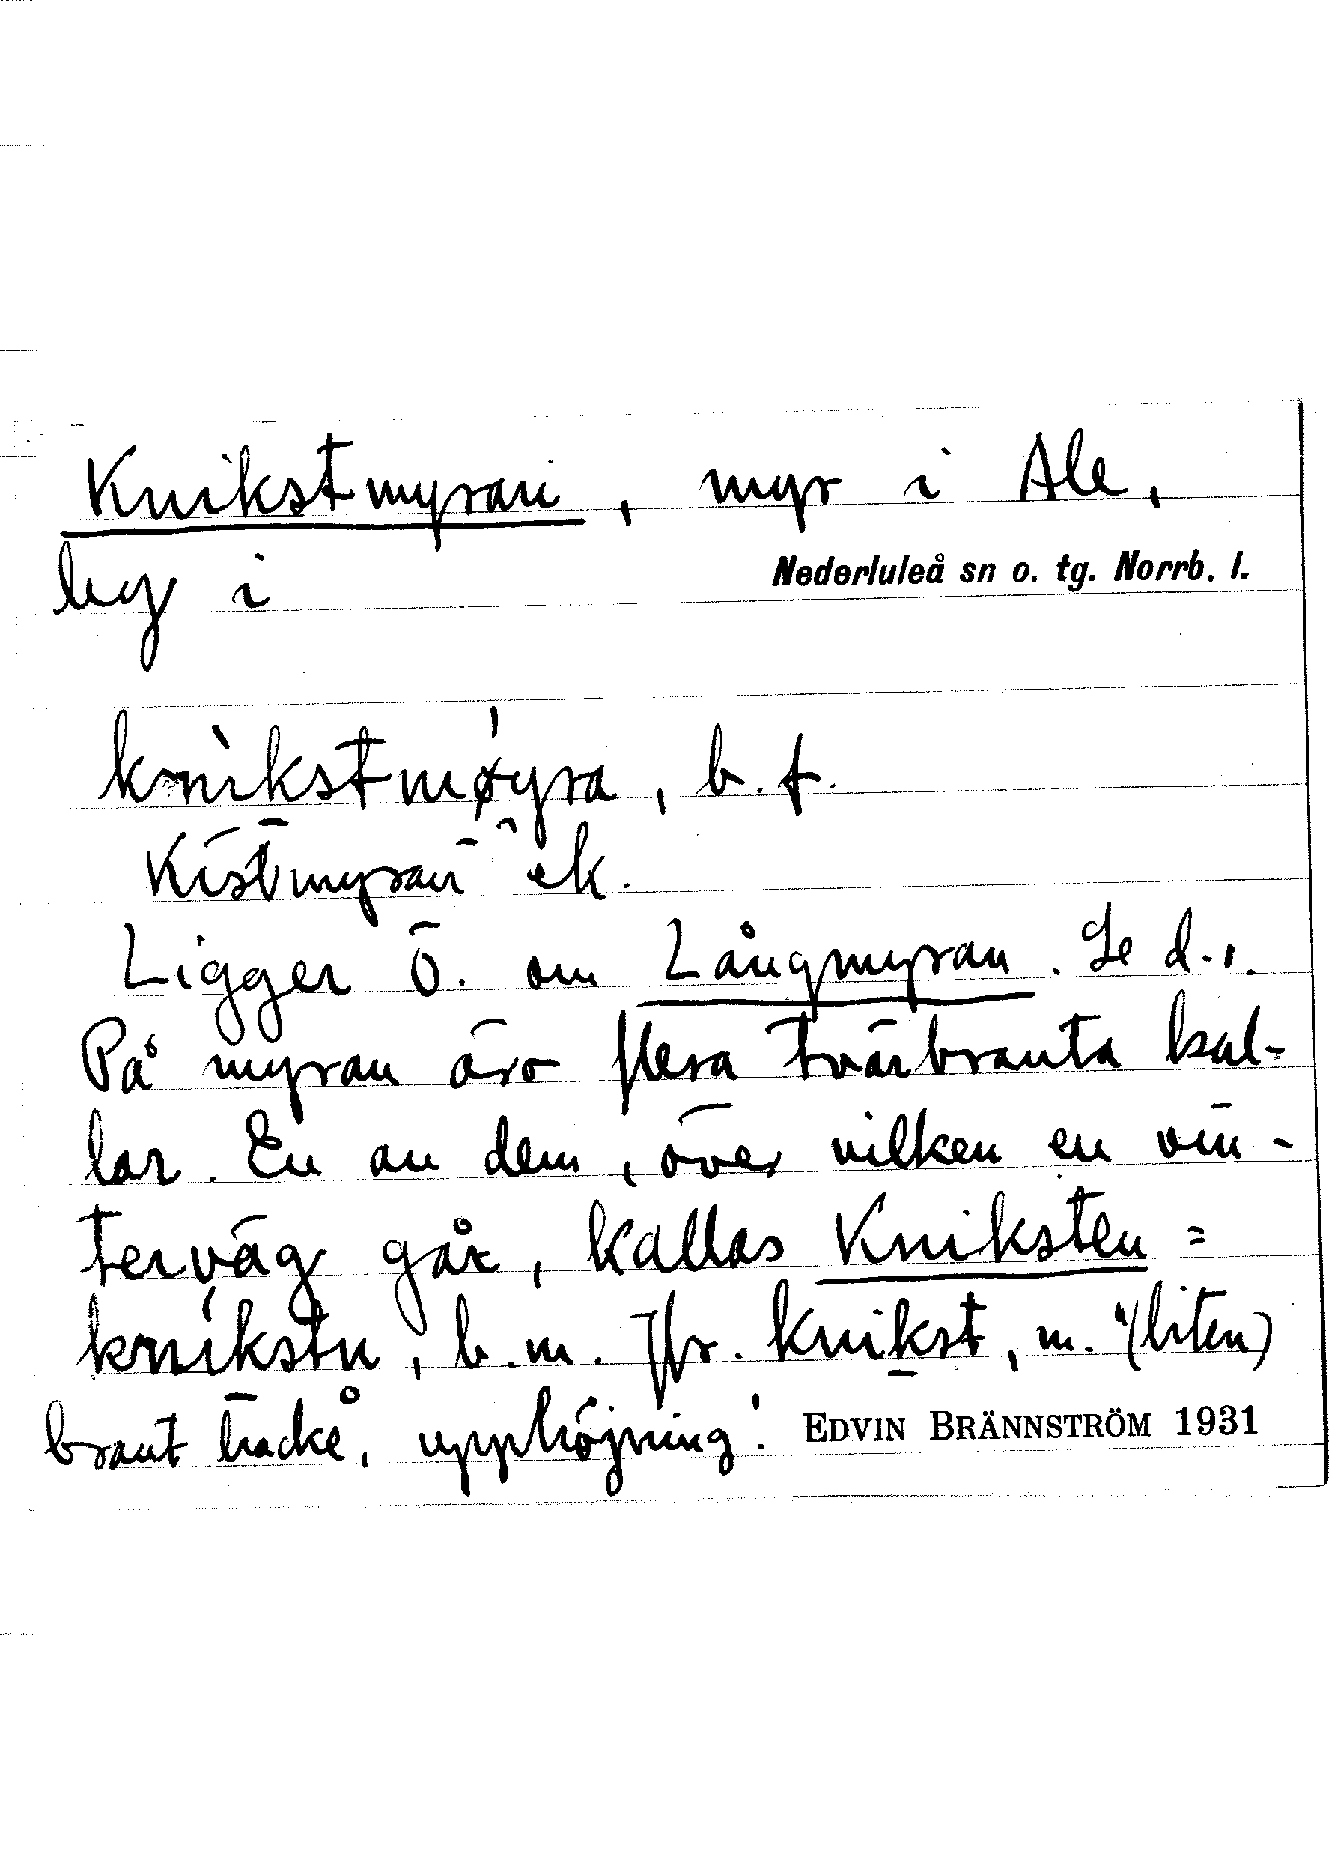 Knikstmyran, myr i Ale,
by i Nederluleå sn o. tg. Norrb. l.
knìkstmøyra, b. f.
Kistmyran ek.
Ligger Ö. om Långmyran. Se d. o.
På myran äro flera tvärbranta kal-
lar. En av dem, över vilken en vin-
terväg går, kallas Kniksten =
knikstn, b. m. Jfr. knikst, m. "(liten)
brant backe, upphöjning". EDVIN BRÄNNSTRÖM 1931